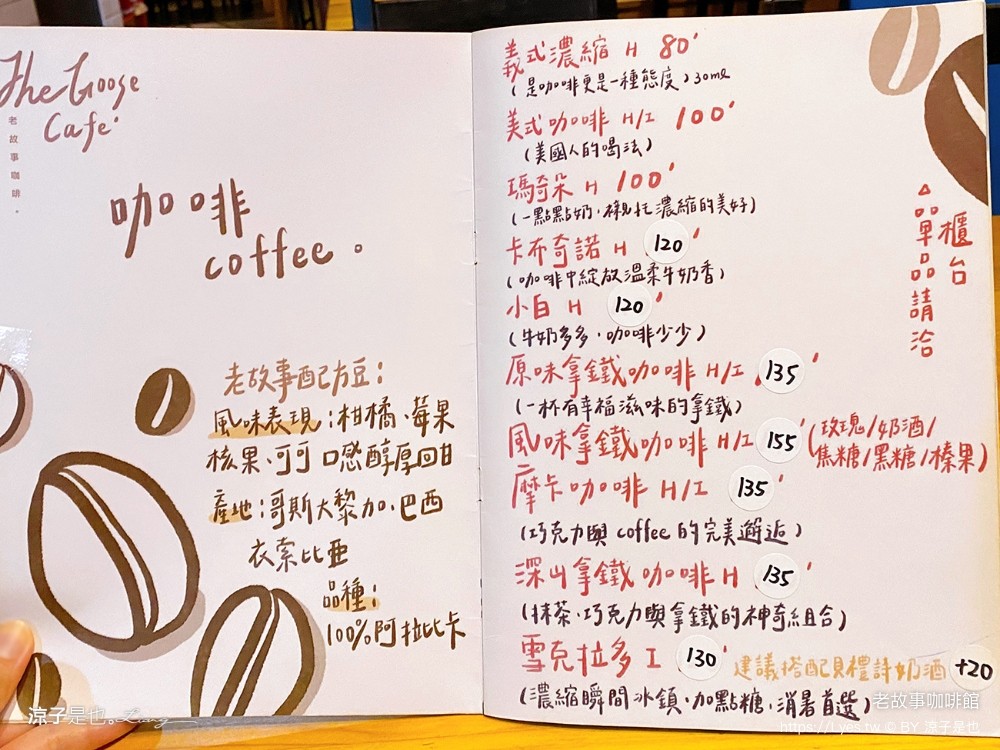 The Goose
Café
老故事咖啡。
咖啡
coffee。
老故事配方豆：
風味表現：柑橘、莓果
核果、可可 口感醇厚回甘
產地：哥斯大黎加、巴西
衣索比亞
品種：
100%阿拉比卡
義式濃縮 H 80'
(是咖啡更是一種態度) 30ml
美式咖啡 H/I 100'
(美國人的喝法)
瑪奇朵 H 100'
(一點點奶，襯托濃縮的美好)
卡布奇諾 H 120'
(咖啡中綻放溫柔牛奶香)
小白 H 120'
(牛奶多多，咖啡少少)
原味拿鐵咖啡 H/I 135'
(一杯有幸福滋味的拿鐵)
風味拿鐵咖啡 H/I 155'
(玫瑰/奶酒/
焦糖/黑糖/榛果)
摩卡咖啡 H/I 135'
(巧克力與 coffee 的完美邂逅)
深山拿鐵咖啡 H 135'
(抹茶、巧克力與拿鐵的神奇組合)
雪克拉多 I 130' 建議搭配貝禮詩奶酒 +20
(濃縮瞬間冰鎮，加點糖，消暑首選)
△單品請洽
櫃台
涼子是也。
老故事咖啡館
https://Lyes.tw © BY 涼子是也